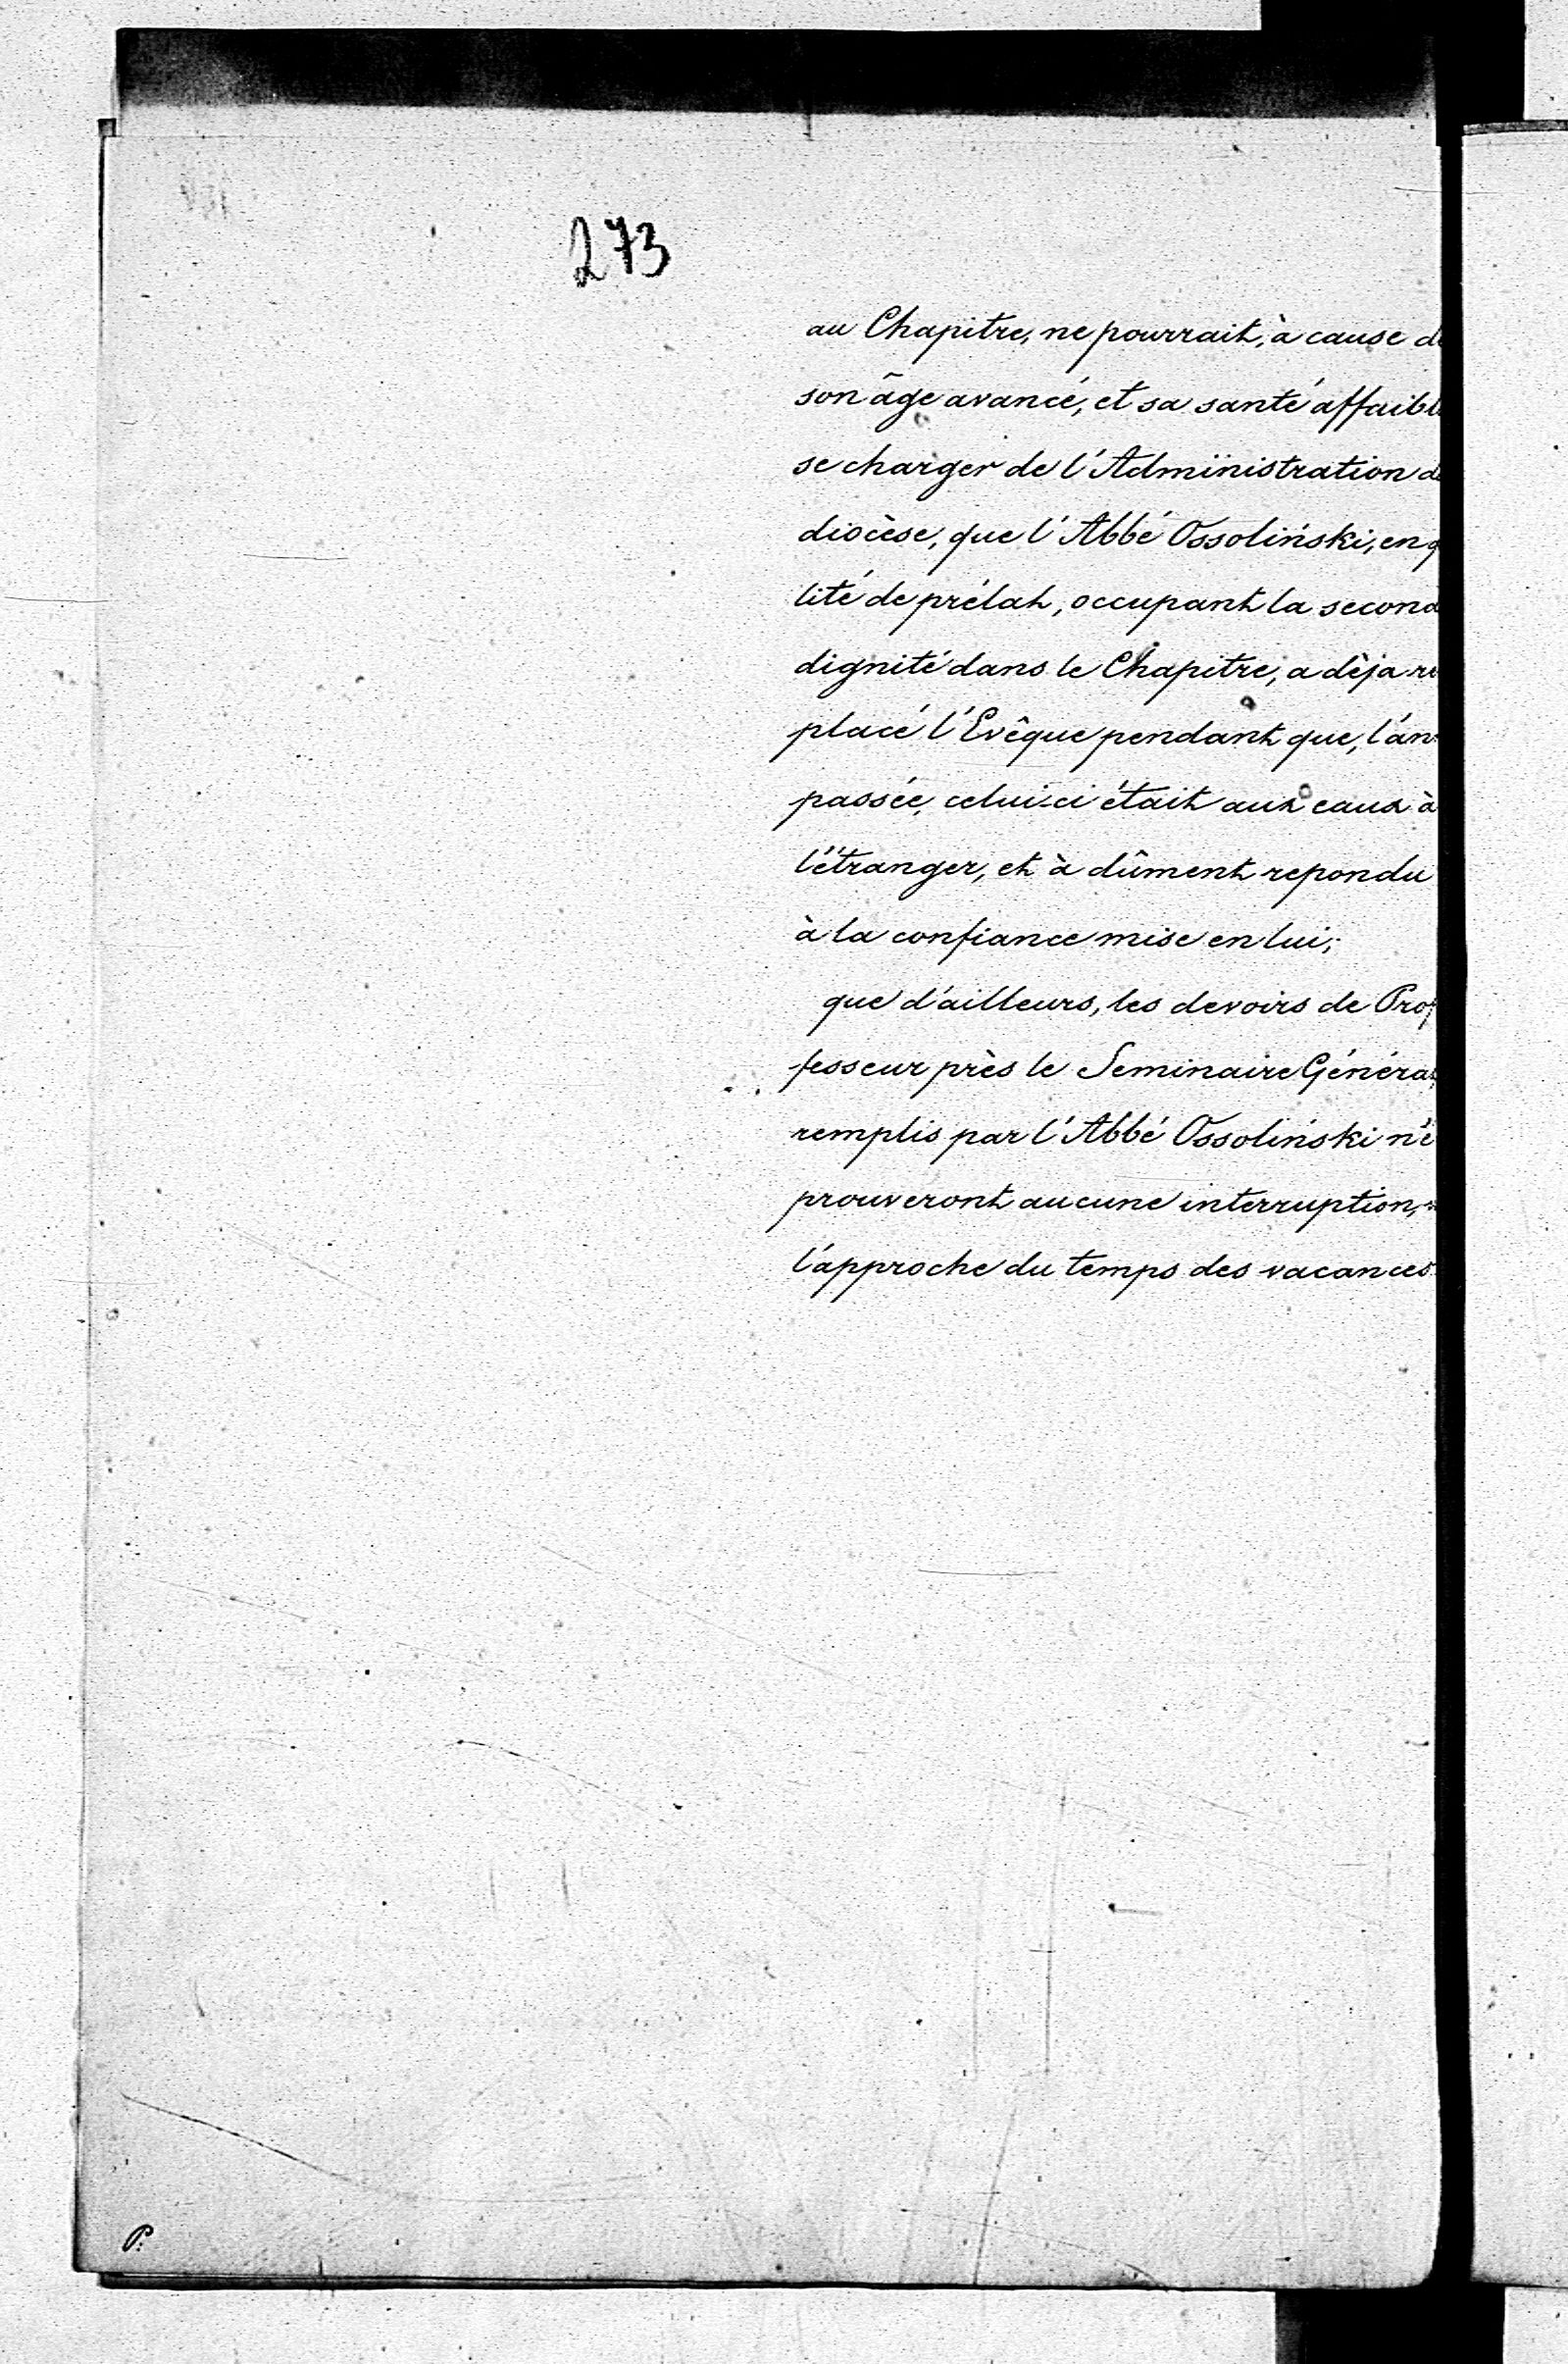 273
au Chapitre, ne pourrait, à cause de
son âge avancé, et sa santé affaibl
se charger de l'Administration d
diocèse, que l'Abbé Ossoliński, en q
lité de prélat, occupant la second
dignité dans le Chapitre, a dèja re
placé l'Evêque pendant que, l'an
passée, celui-ci était aux eaux à
l'étranger, et à dûment repondu
à la confiance mise en lui;
que d'ailleurs, les devoirs de Prof
fesseur près le Seminaire Généra
remplis par l'Abbé Ossoliński n'é
prouveront aucune interruption,
l'approche du temps des vacances
P.